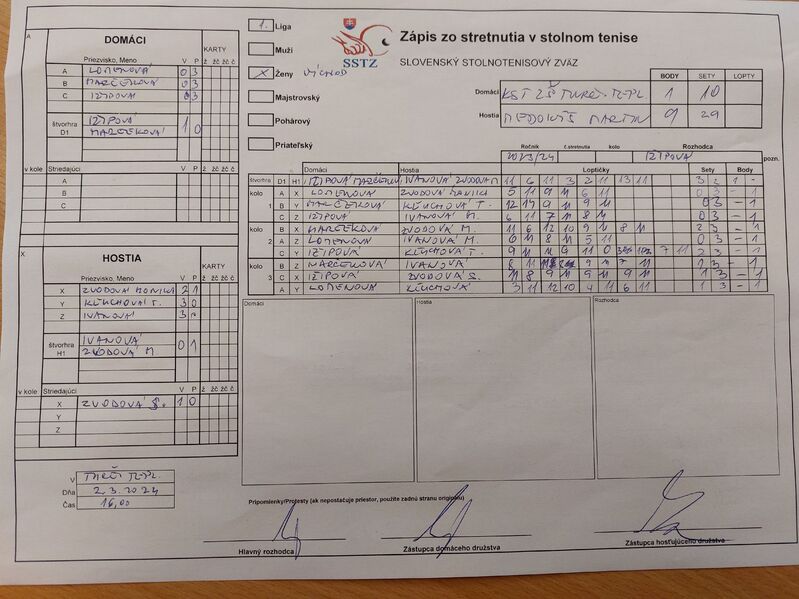 1. Liga
Muži
X Ženy VÝCHOD
Majstrovský
Pohárový
Priateľský
SSTZ
Zápis zo stretnutia v stolnom tenise
SLOVENSKÝ STOLNOTENISOVÝ ZVÄZ
BODY SETY LOPTY
Domáci 1 10
Hostia MEDOKÝŠ MARTIN 9 29
A
DOMÁCI
KARTY
Priezvisko, Meno V P ž žč žč č
A LOMENOVÁ 0 3
B MARČEKOVÁ 0 3
C IZIPOVÁ 0 3
štvorhra IZIPOVÁ 1 0
D1 MARČEKOVÁ
v kole Striedajúci V P ž žč žč č
A
B
C
X
HOSTIA
KARTY
Priezvisko, Meno V P ž žč žč č
X ZVODOVÁ MONIKA 2 1
Y KĽUCHOVÁ T. 3 0
Z IVANOVÁ 3
štvorhra IVANOVÁ 0 1
H1 ZVODOVÁ M
v kole Striedajúci V P ž žč žč č
X ZVODOVÁ S. 1 0
Y
Z
Ročník č.stretnutia kolo Rozhodca
2023/24 IZIPOVÁ pozn.
Domáci Hostia Loptičky Sety Body
štvorhra D1 H1 IZIPOVÁ MARČEKOVÁ IVANOVÁ ZVODOVÁ M 11 6 11 3 2 11 13 11 3 1 -
kolo A X LOMENOVÁ ZVODOVÁ MONIKA 5 11 9 11 6 11 0 3 - 1
1 B Y MARČEKOVÁ KĽUCHOVÁ T. 12 14 9 11 9 11 0 3 - 1
C Z IZIPOVÁ IVANOVÁ M. 6 11 7 11 8 11 0 3 - 1
kolo B X MARČEKOVÁ ZVODOVÁ M. 11 6 12 10 9 11 8 11 2 3 - 1
2 A Z LOMENOVÁ IVANOVÁ M. 6 11 8 11 5 11 0 3 - 1
C Y IZIPOVÁ KĽUCHOVÁ T. 9 11 11 0 7 11 2 3 - 1
kolo B Z MARČEKOVÁ IVANOVÁ 8 11 7 11 3 - 1
3 C X IZIPOVÁ ZVODOVÁ S. 11 8 9 11 9 11 9 11 1 3 - 1
A Y LOMENOVÁ KĽUCHOVÁ 3 11 12 10 4 11 6 11 1 3 - 1
Domáci Hostia Rozhodca
V
Dňa 2.3.2024
Čas 16,00
Pripomienky/Protesty (ak nepostačuje priestor, použite zadnú stranu originálu)
Hlavný rozhodca
Zástupca domáceho družstva
Zástupca hosťujúceho družstva